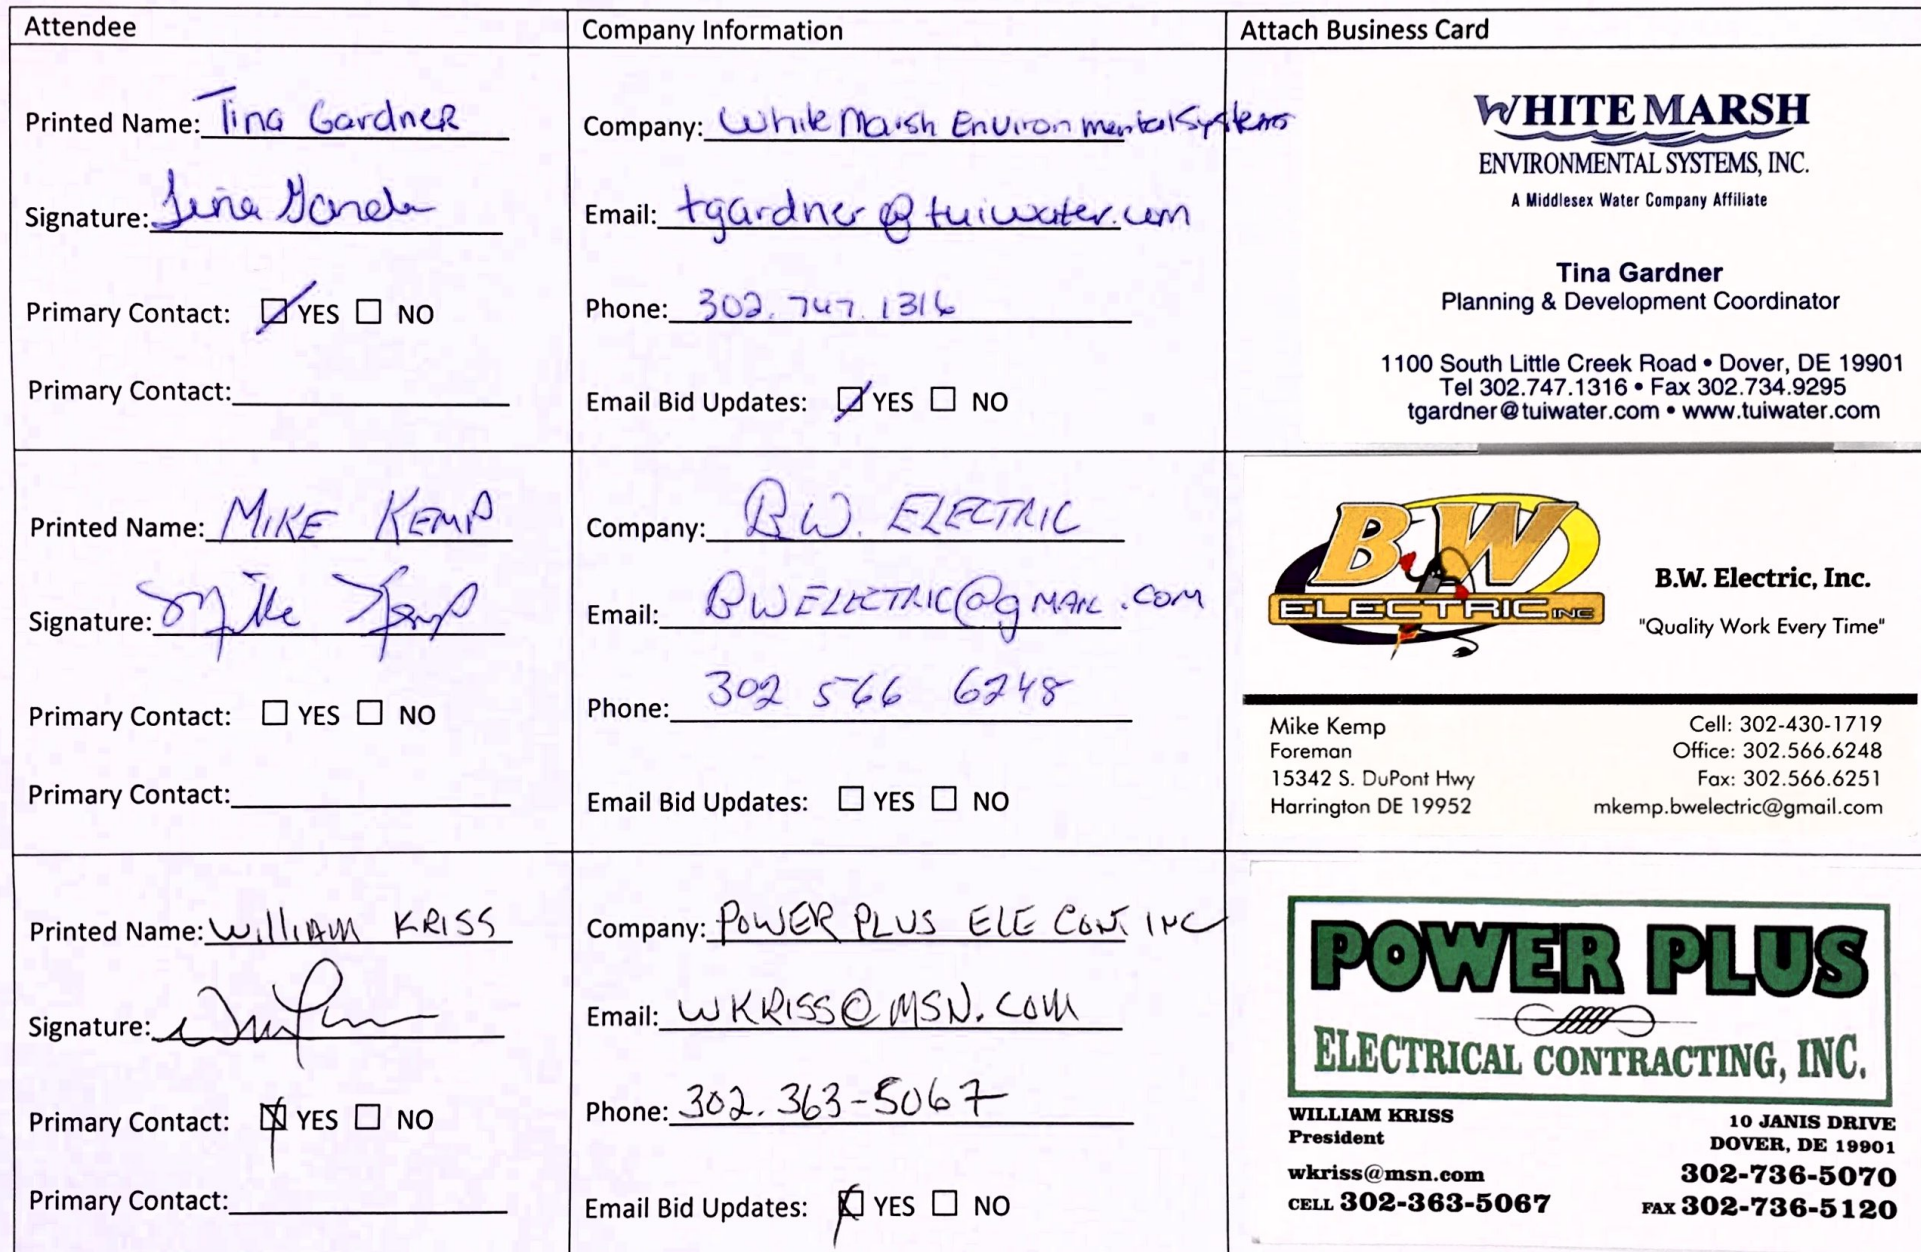 Attendee
Company Information
Attach Business Card
Printed Name: Tina Gardner
Signature: Tina Gardner
Primary Contact: ☐ YES ☐ NO
Primary Contact:
Company: White Marsh Environmental Systems
Email: tgardner@tuiwater.com
Phone: 302.747.1316
Email Bid Updates: ☐ YES ☐ NO
WHITE MARSH
ENVIRONMENTAL SYSTEMS, INC.
A Middlesex Water Company Affiliate
Tina Gardner
Planning & Development Coordinator
1100 South Little Creek Road • Dover, DE 19901
Tel 302.747.1316 • Fax 302.734.9295
tgardner@tuiwater.com • www.tuiwater.com
Printed Name: MIKE KEMP
Signature: Mike Kemp
Primary Contact: ☐ YES ☐ NO
Primary Contact:
Company: B.W. ELECTRIC
Email: BWELECTRIC@gMAIL.COM
Phone: 302 566 6248
Email Bid Updates: ☐ YES ☐ NO
B.W
ELECTRIC INC
B.W. Electric, Inc.
"Quality Work Every Time"
Mike Kemp
Foreman
15342 S. DuPont Hwy
Harrington DE 19952
Cell: 302-430-1719
Office: 302.566.6248
Fax: 302.566.6251
mkemp.bwelectric@gmail.com
Printed Name: WilliAM KRISS
Signature:
Primary Contact: ☐ YES ☐ NO
Primary Contact:
Company: POWER PLUS ELE CONT. INC
Email: WKRISS@MSN.COM
Phone: 302.363-5067
Email Bid Updates: ☐ YES ☐ NO
POWER PLUS
ELECTRICAL CONTRACTING, INC.
WILLIAM KRISS
President
wkriss@msn.com
CELL 302-363-5067
10 JANIS DRIVE
DOVER, DE 19901
302-736-5070
FAX 302-736-5120